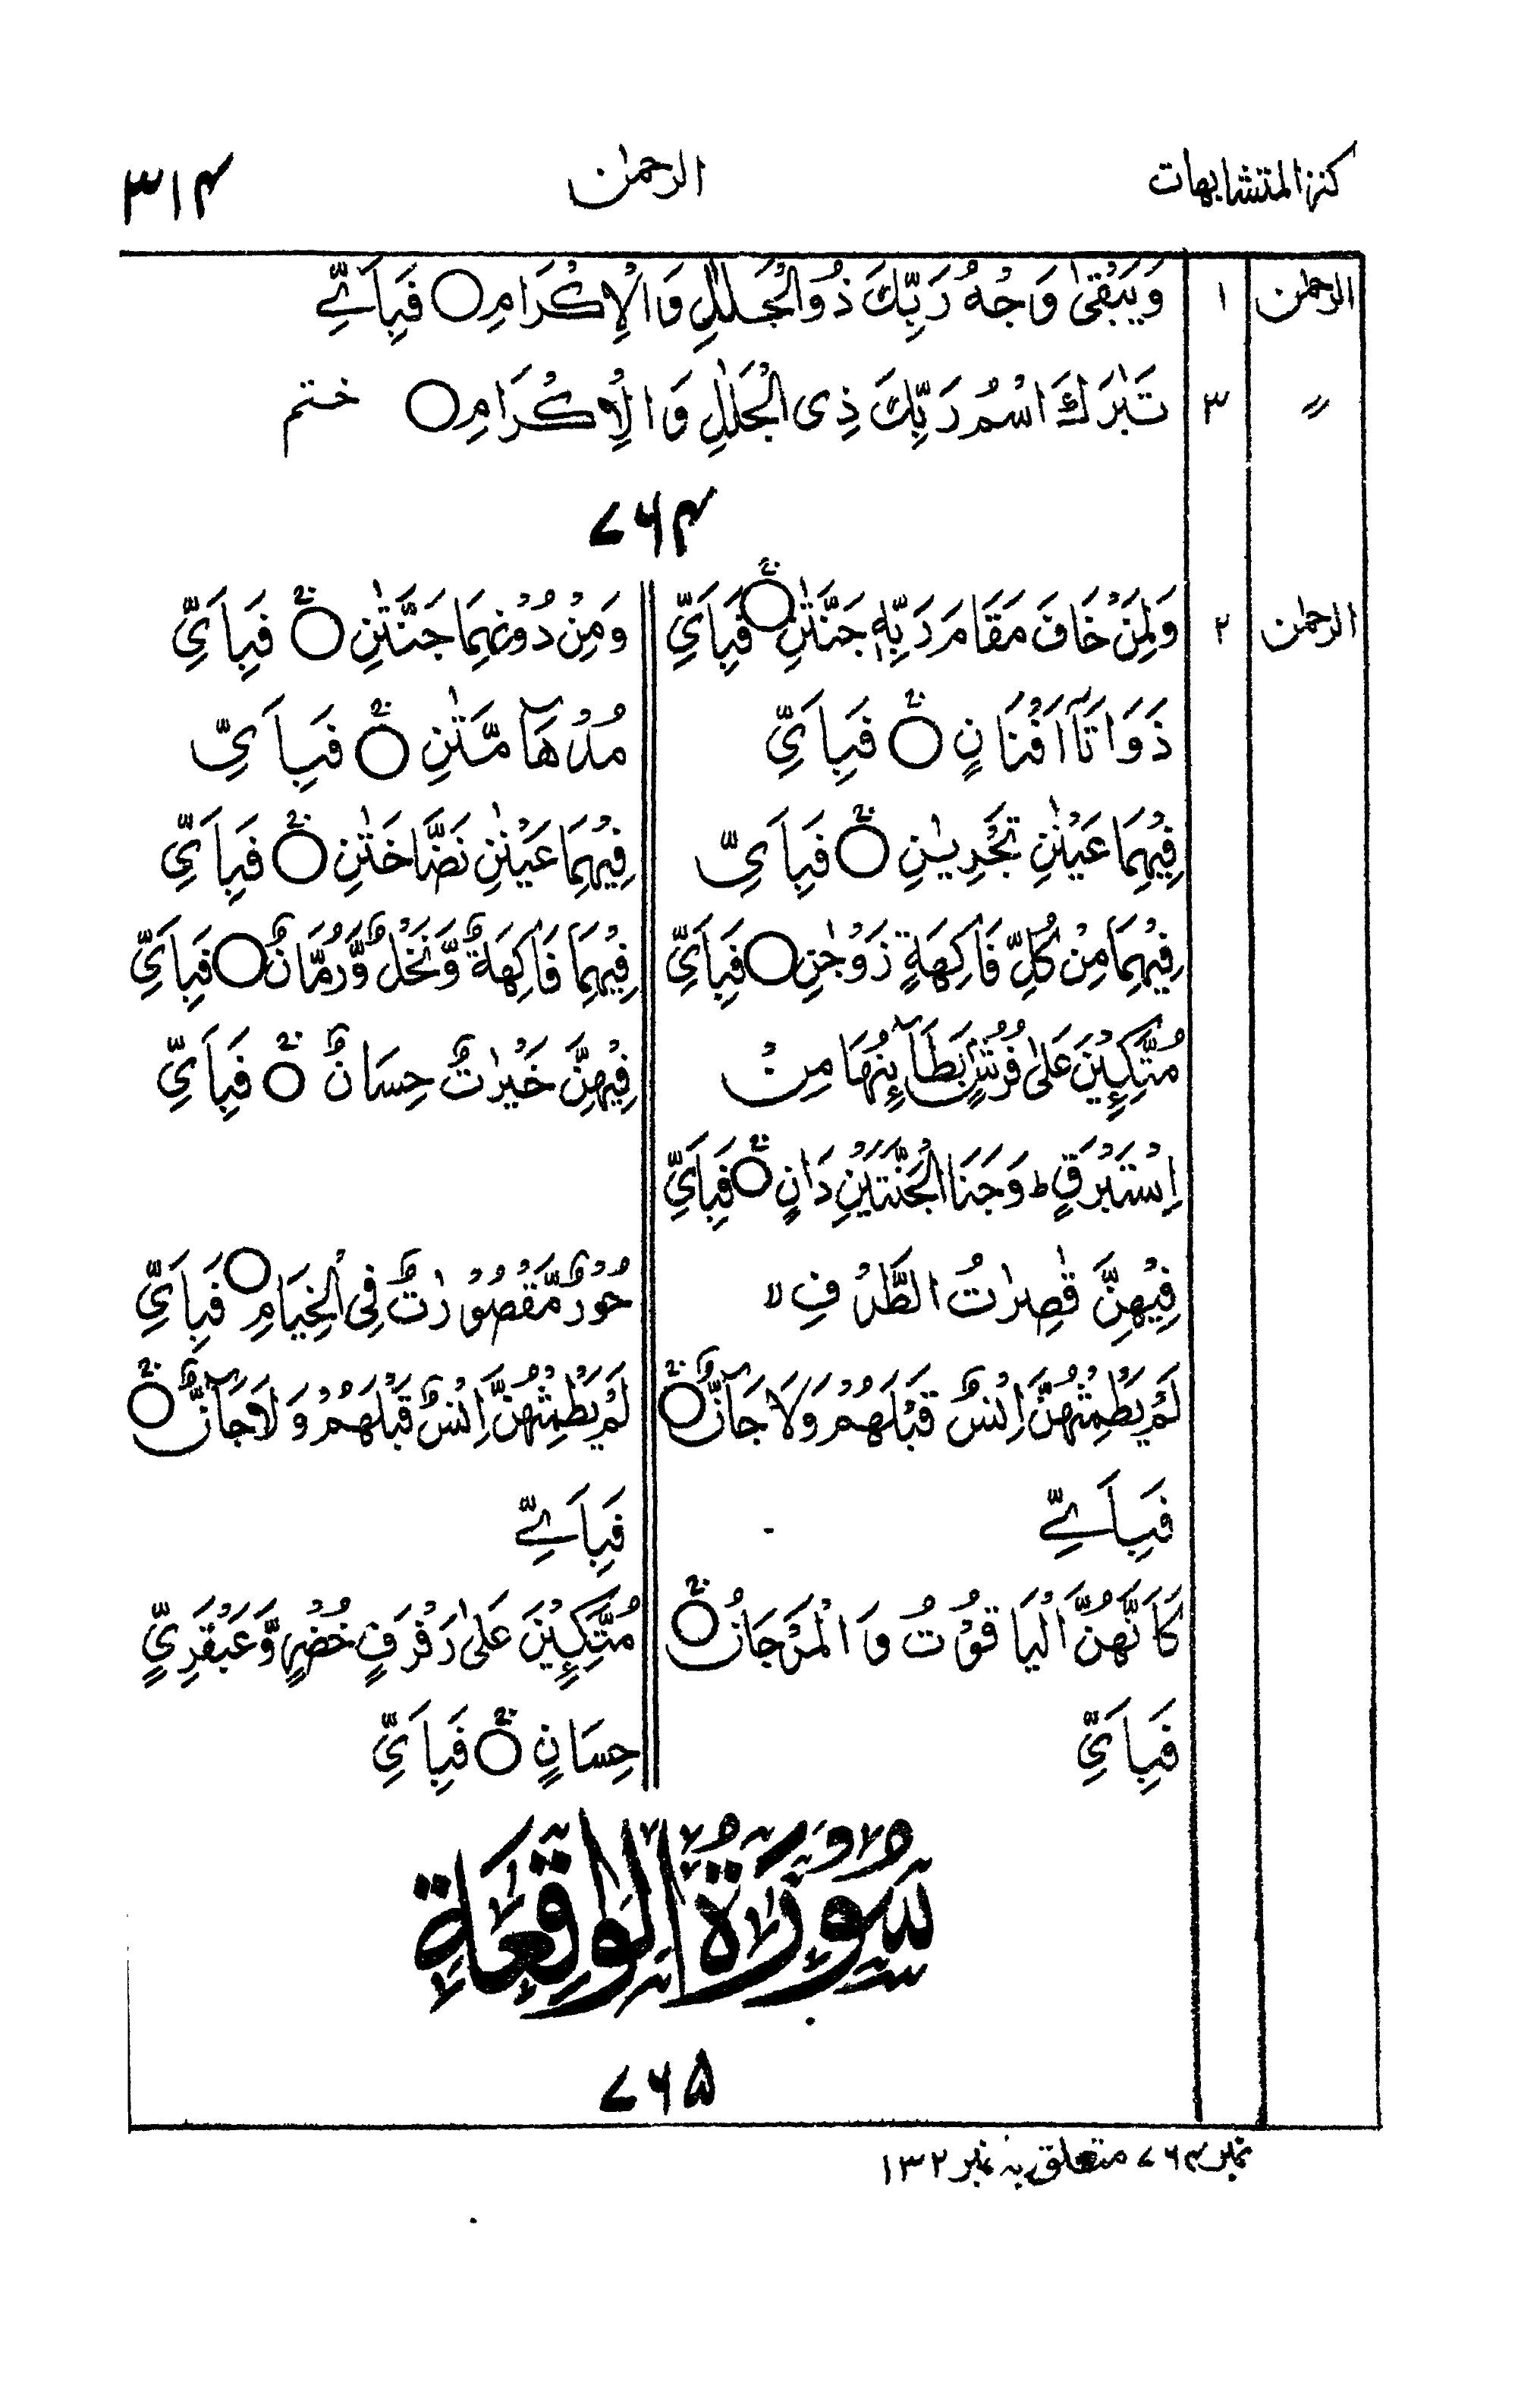 كنز المتشابهات الرحمٰن ۳۱۴
الرحمٰن ۱ وَيَبْقٰى وَجْهُ رَبِّكَ ذُو الْجَلٰلِ وَالْاِكْرَامِ ○ فَبِاَيِّ
〃 ۳ تَبٰرَكَ اسْمُ رَبِّكَ ذِى الْجَلٰلِ وَالْاِكْرَامِ ○ ختم
۷۶۴
الرحمٰن ۲ وَلِمَنْ خَافَ مَقَامَ رَبِّهٖ جَنَّتٰنِ ○ فَبِاَيِّ وَمِنْ دُوْنِهِمَا جَنَّتٰنِ ○ فَبِاَيِّ
ذَوَاتَآ اَفْنَانٍ ○ فَبِاَيِّ مُدْهَآمَّتٰنِ ○ فَبِاَيِّ
فِيْهِمَا عَيْنٰنِ تَجْرِيٰنِ ○ فَبِاَيِّ فِيْهِمَا عَيْنٰنِ نَضَّاخَتٰنِ ○ فَبِاَيِّ
فِيْهِمَا مِنْ كُلِّ فَاكِهَةٍ زَوْجٰنِ ○ فَبِاَيِّ فِيْهِمَا فَاكِهَةٌ وَّنَخْلٌ وَّرُمَّانٌ ○ فَبِاَيِّ
مُتَّكِـِٕيْنَ عَلٰى فُرُشٍۢ بَطَآئِنُهَا مِنْ فِيْهِنَّ خَيْرٰتٌ حِسَانٌ ○ فَبِاَيِّ
اِسْتَبْرَقٍ ؕ وَجَنَا الْجَنَّتَيْنِ دَانٍ ○ فَبِاَيِّ
فِيْهِنَّ قٰصِرٰتُ الطَّرْفِ ۙ حُوْرٌ مَّقْصُوْرٰتٌ فِى الْخِيَامِ ○ فَبِاَيِّ
لَمْ يَطْمِثْهُنَّ اِنْسٌ قَبْلَهُمْ وَلَا جَآنٌّ ○ لَمْ يَطْمِثْهُنَّ اِنْسٌ قَبْلَهُمْ وَلَا جَآنٌّ ○
فَبِاَيِّ فَبِاَيِّ
كَاَنَّهُنَّ الْيَاقُوْتُ وَالْمَرْجَانُ ○ مُتَّكِـِٕيْنَ عَلٰى رَفْرَفٍ خُضْرٍ وَّعَبْقَرِيٍّ
فَبِاَيِّ حِسَانٍ ○ فَبِاَيِّ
سُوْرَةُ الْوَاقِعَةِ
۷۶۵
نمبر ۷۶۴ متعلق بہ نمبر ۱۳۲